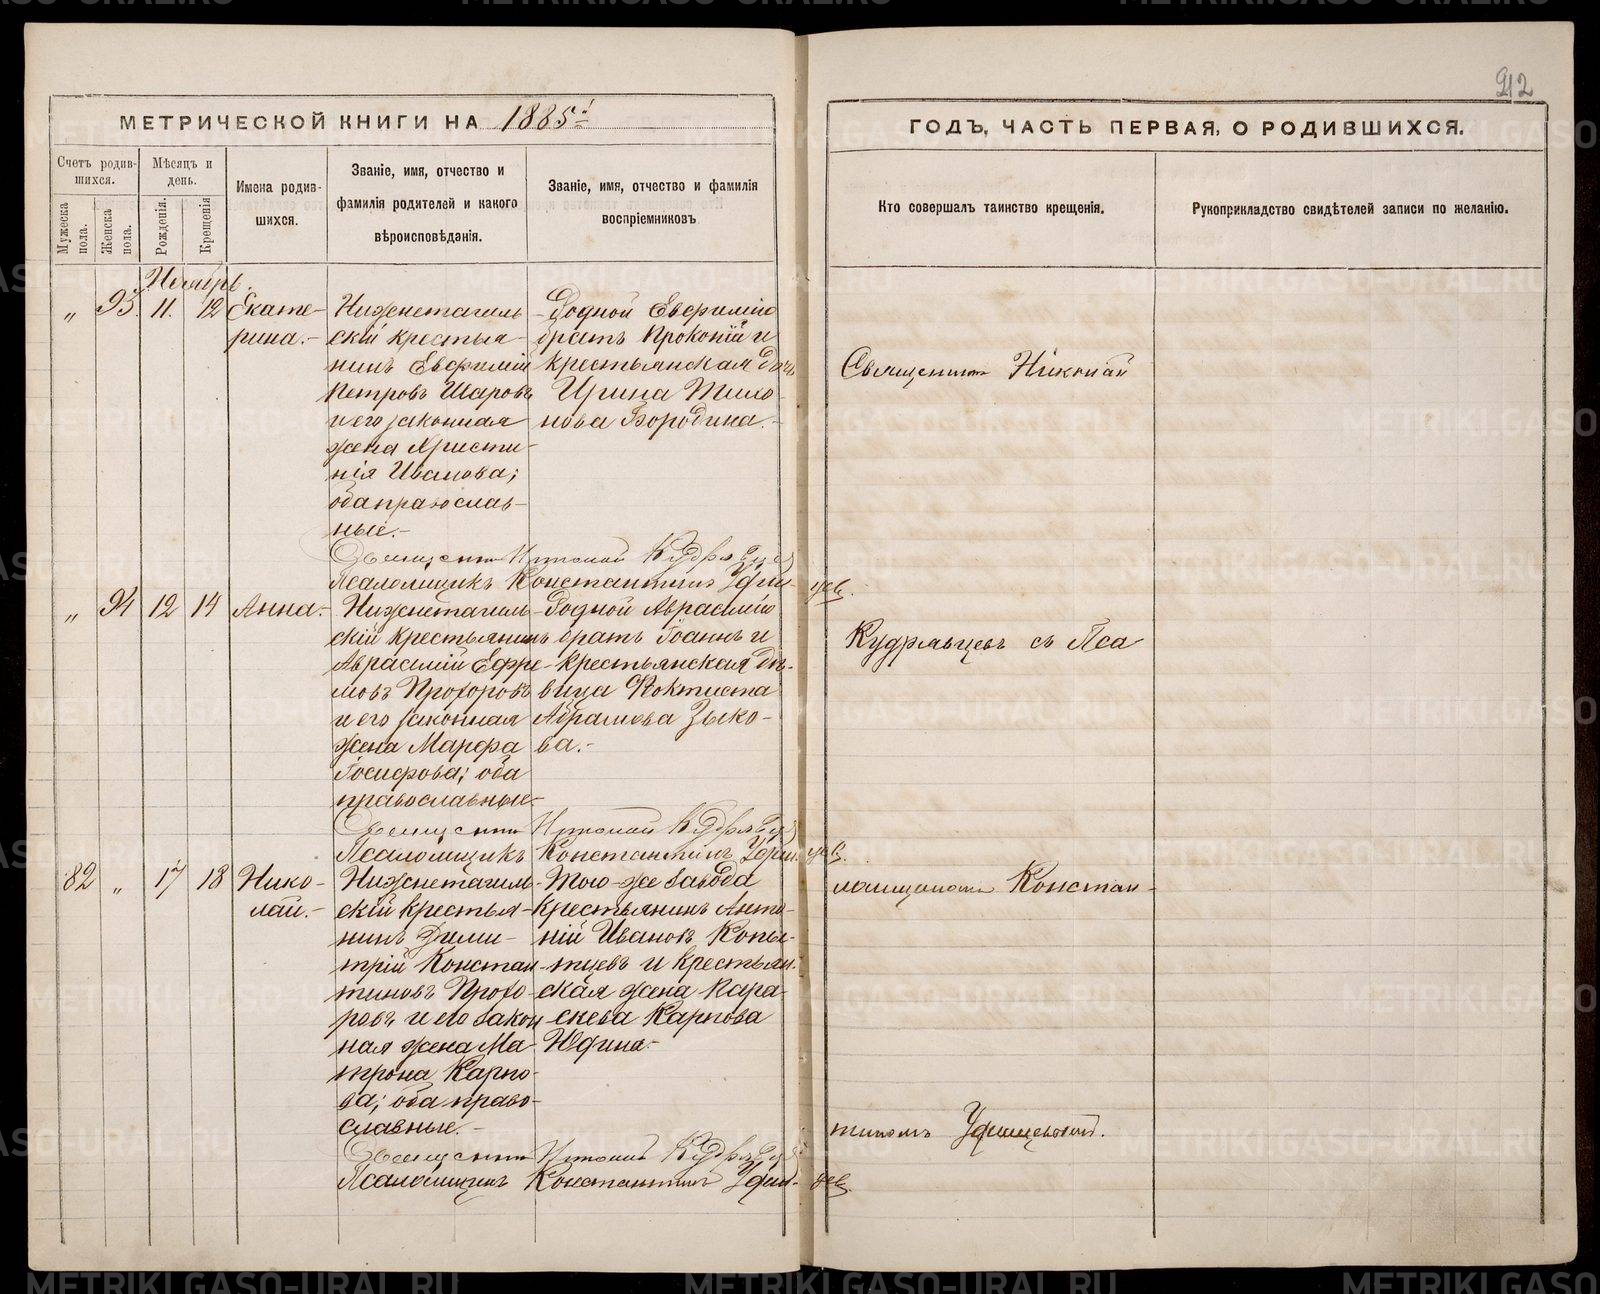 912
МЕТРИЧЕСКОЙ КНИГИ НА 1885й
ГОДЪ, ЧАСТЬ ПЕРВАЯ, О РОДИВШИХСЯ.
Счетъ родив-
шихся.
Мужеска пола.
Женска пола.
Мѣсяцъ и
день.
Рожденія.
Крещенія
Имена родив-
шихся.
Званіе, имя, отчество и
фамилія родителей и какого
вѣроисповѣданія.
Званіе, имя, отчество и фамилія
воспріемниковъ
Кто совершалъ таинство крещенія.
Рукоприкладство свидѣтелей записи по желанію.
Ноябрь.
„ 93. 11. 12
Екате-
рина.-
Нижнетагиль-
скій крестья-
нинъ Евфимій
Петровъ Шаровъ
и его законная
жена Христи-
нія Иванова;
оба православ-
ные.-
Родной Евфимію
братъ Прокопій и
крестьянская дочь
Ирина Тихо-
нова Бородина.-
Священник Николай Кудрявцев
Псаломщикъ Константинъ Удин-цев.
„ 94 12 14
Анна.-
Нижнетагиль-
скій крестьянинъ
Аврамій Ефре-
мовъ Прохоровъ
и его законная
жена Марфа
Іосифова; оба
православные-
Родной Аврамію
братъ Іоаннъ и
крестьянская дѣ-
вица Фоктиста
Абрамова Зыко-
ва.-
Священник Николай Кудрявцев
Псаломщикъ Константинъ Удин-цев.
82 „ 17 18
Нико-
лай.-
Нижнетагиль-
скій крестья-
нинъ Дими-
трій Констан-
тиновъ Прохо-
ровъ и его закон
ная жена Ма-
трона Карпо-
ва; оба право-
славные.-
Того-же завода
крестьянинъ Анто-
ній Ивановъ Копы-
тцевъ и крестьян-
ская жена Пара-
скева Карпова
Юдина.-
Священник Николай Кудрявцев
Псаломщикъ Константинъ Удин-цев
Священникъ Николай
Кудрявцевъ съ Пса
ломщикомъ Констан-
тиномъ Удинцевымъ.